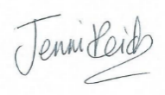 Jenni Reid